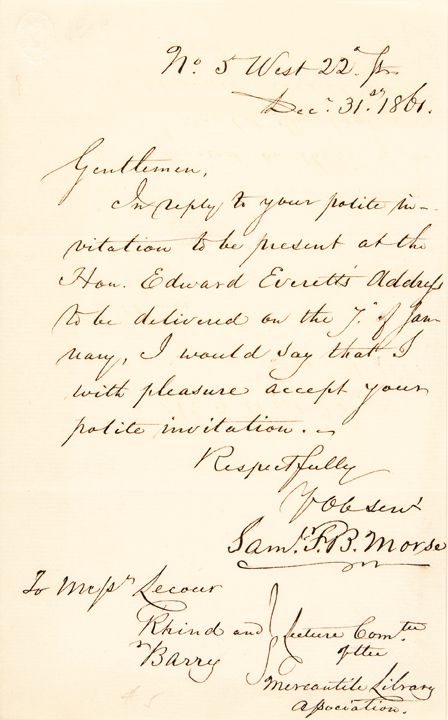 No 5 West 22d St.
Decr. 31st. 1861.
Gentlemen,
In reply to your polite in-
vitation to be present at the
Hon. Edward Everett's Address
to be delivered on the 7th of Jan-
uary, I would say that I
with pleasure accept your
polite invitation.
Respectfully
Y Ob servt
Saml. F. B. Morse
To Messrs Lecour
Rhind and
Barry
Lecture Comtee
of the
Mercantile Library
Association.